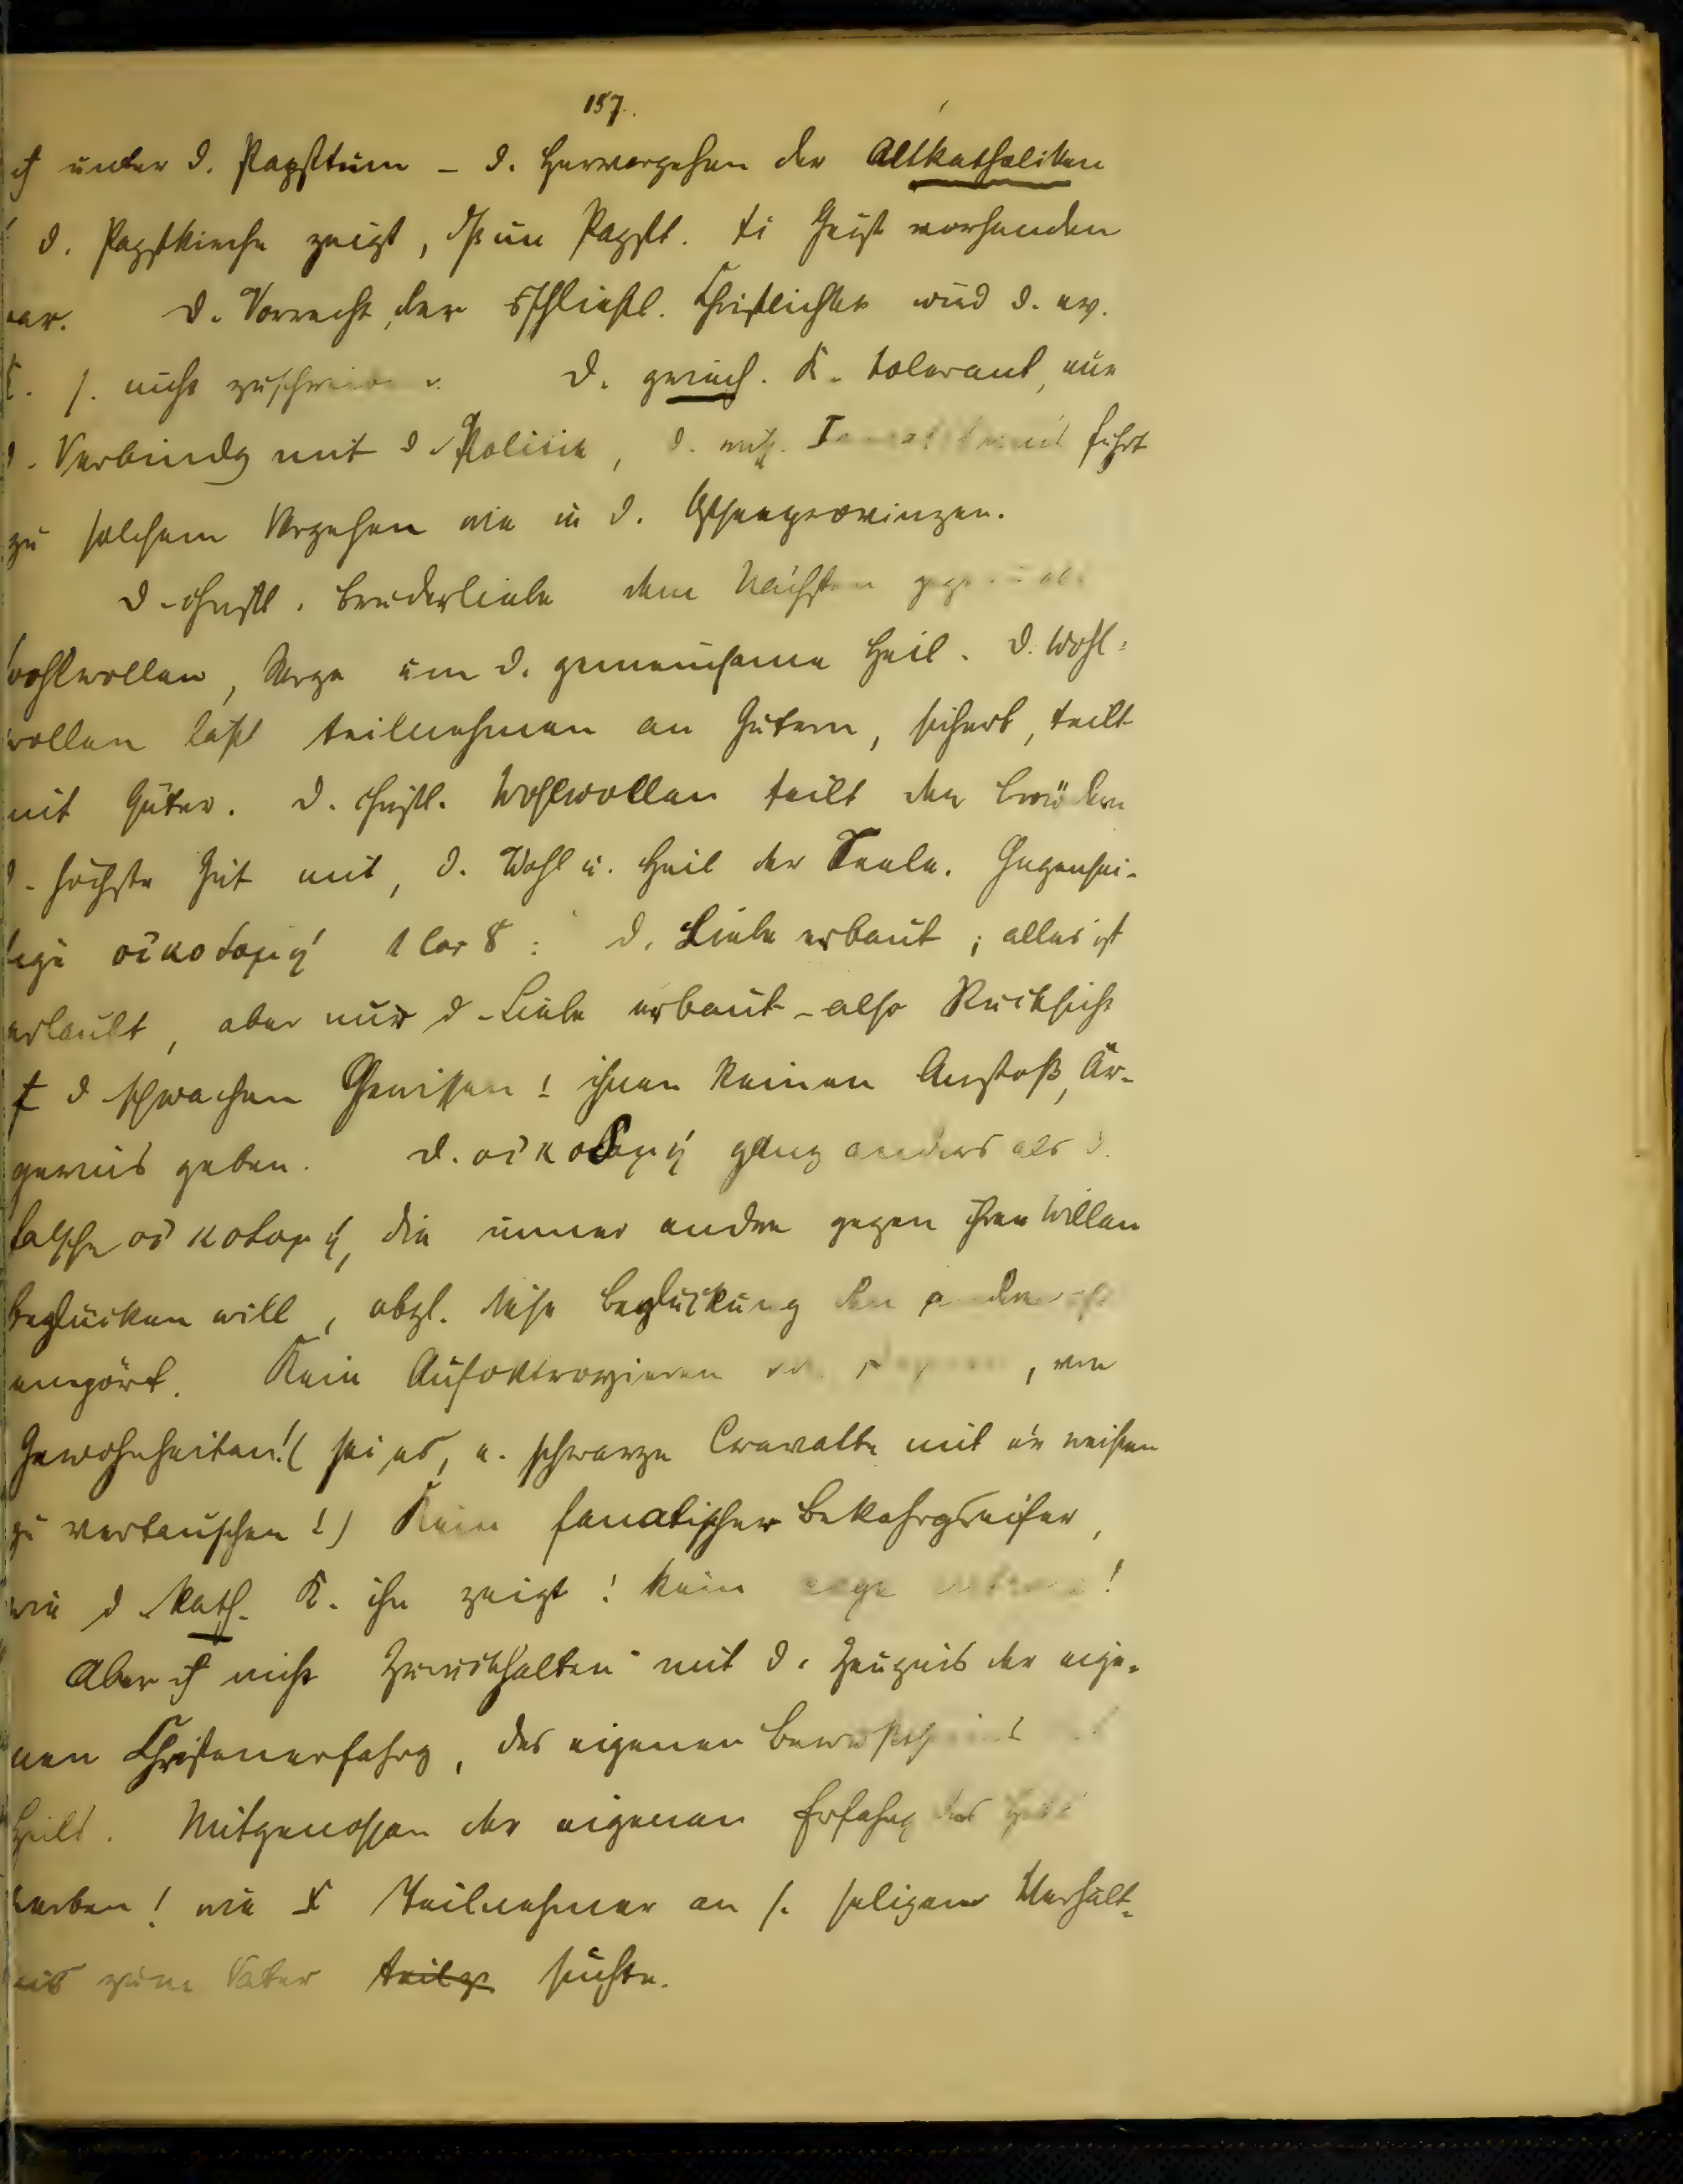 157.
unter d. Papsttum – d. Hervorgehen der Altkatholiken
d. Papstkirche zeigt, dß im Papstt. Geist vorhanden
war. D. Vorrecht der Christlichkt wird d. ev.
K. s. nicht zuschreiben. D. griech. K. tolerant, nur
d. Verbindg mit d. Politik, d. führt
zu solchem Vorgehen wie in d. Ostseeprovinzen.
D. christl. Bruderliebe dem Nächsten gegenüber
Wohlwollen, Sorge um d. gemeinsame Heil. D. Wohl-
wollen läßt teilnehmen an Gütern, sichert, teilt
mit Güter. D. christl. Wohlwollen teilt den Brüdern
d. höchste Gut mit, d. Wohl u. Heil der Seele. Gegensei-
tige οἰκοδομή 1 Cor 8: d. Liebe erbaut; alles ist
erlaubt, aber nur d. Liebe erbaut – also Rücksicht
d. schwachen Gewissen! ihnen keinen Anstoß, Är-
gernis geben. D. οἰκοδομή ganz anders als d.
falsche οἰκοδομή, die immer andre gegen ihren Willen
beglücken will, obgl. diese Beglückung den andern oft
empört. Kein Aufoktroyieren , von
Gewohnheiten! (sei es, e. schwarze Cravatte mit er weißen
zu vertauschen!) Kein fanatischer Bekehrgseifer,
wie d. kath. K. ihn zeigt! kein !
Aber nicht Zurückhalten mit d. Zeugnis der eige-
nen Christenerfahrg, des eigenen Bewußtseins
Heils. Mitgenossen der eigenen Erfahrg des Heils
werben! wie X Teilnehmer an s. seligem Verhält-
nis zum Vater suchte.